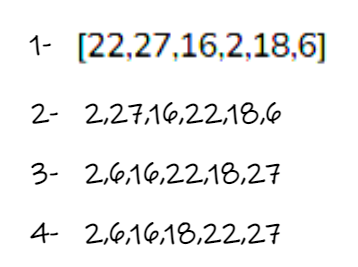 1- [22,27,16,2,18,6]
2- 2,27,16,22,18,6
3- 2,6,16,22,18,27
4- 2,6,16,18,22,27